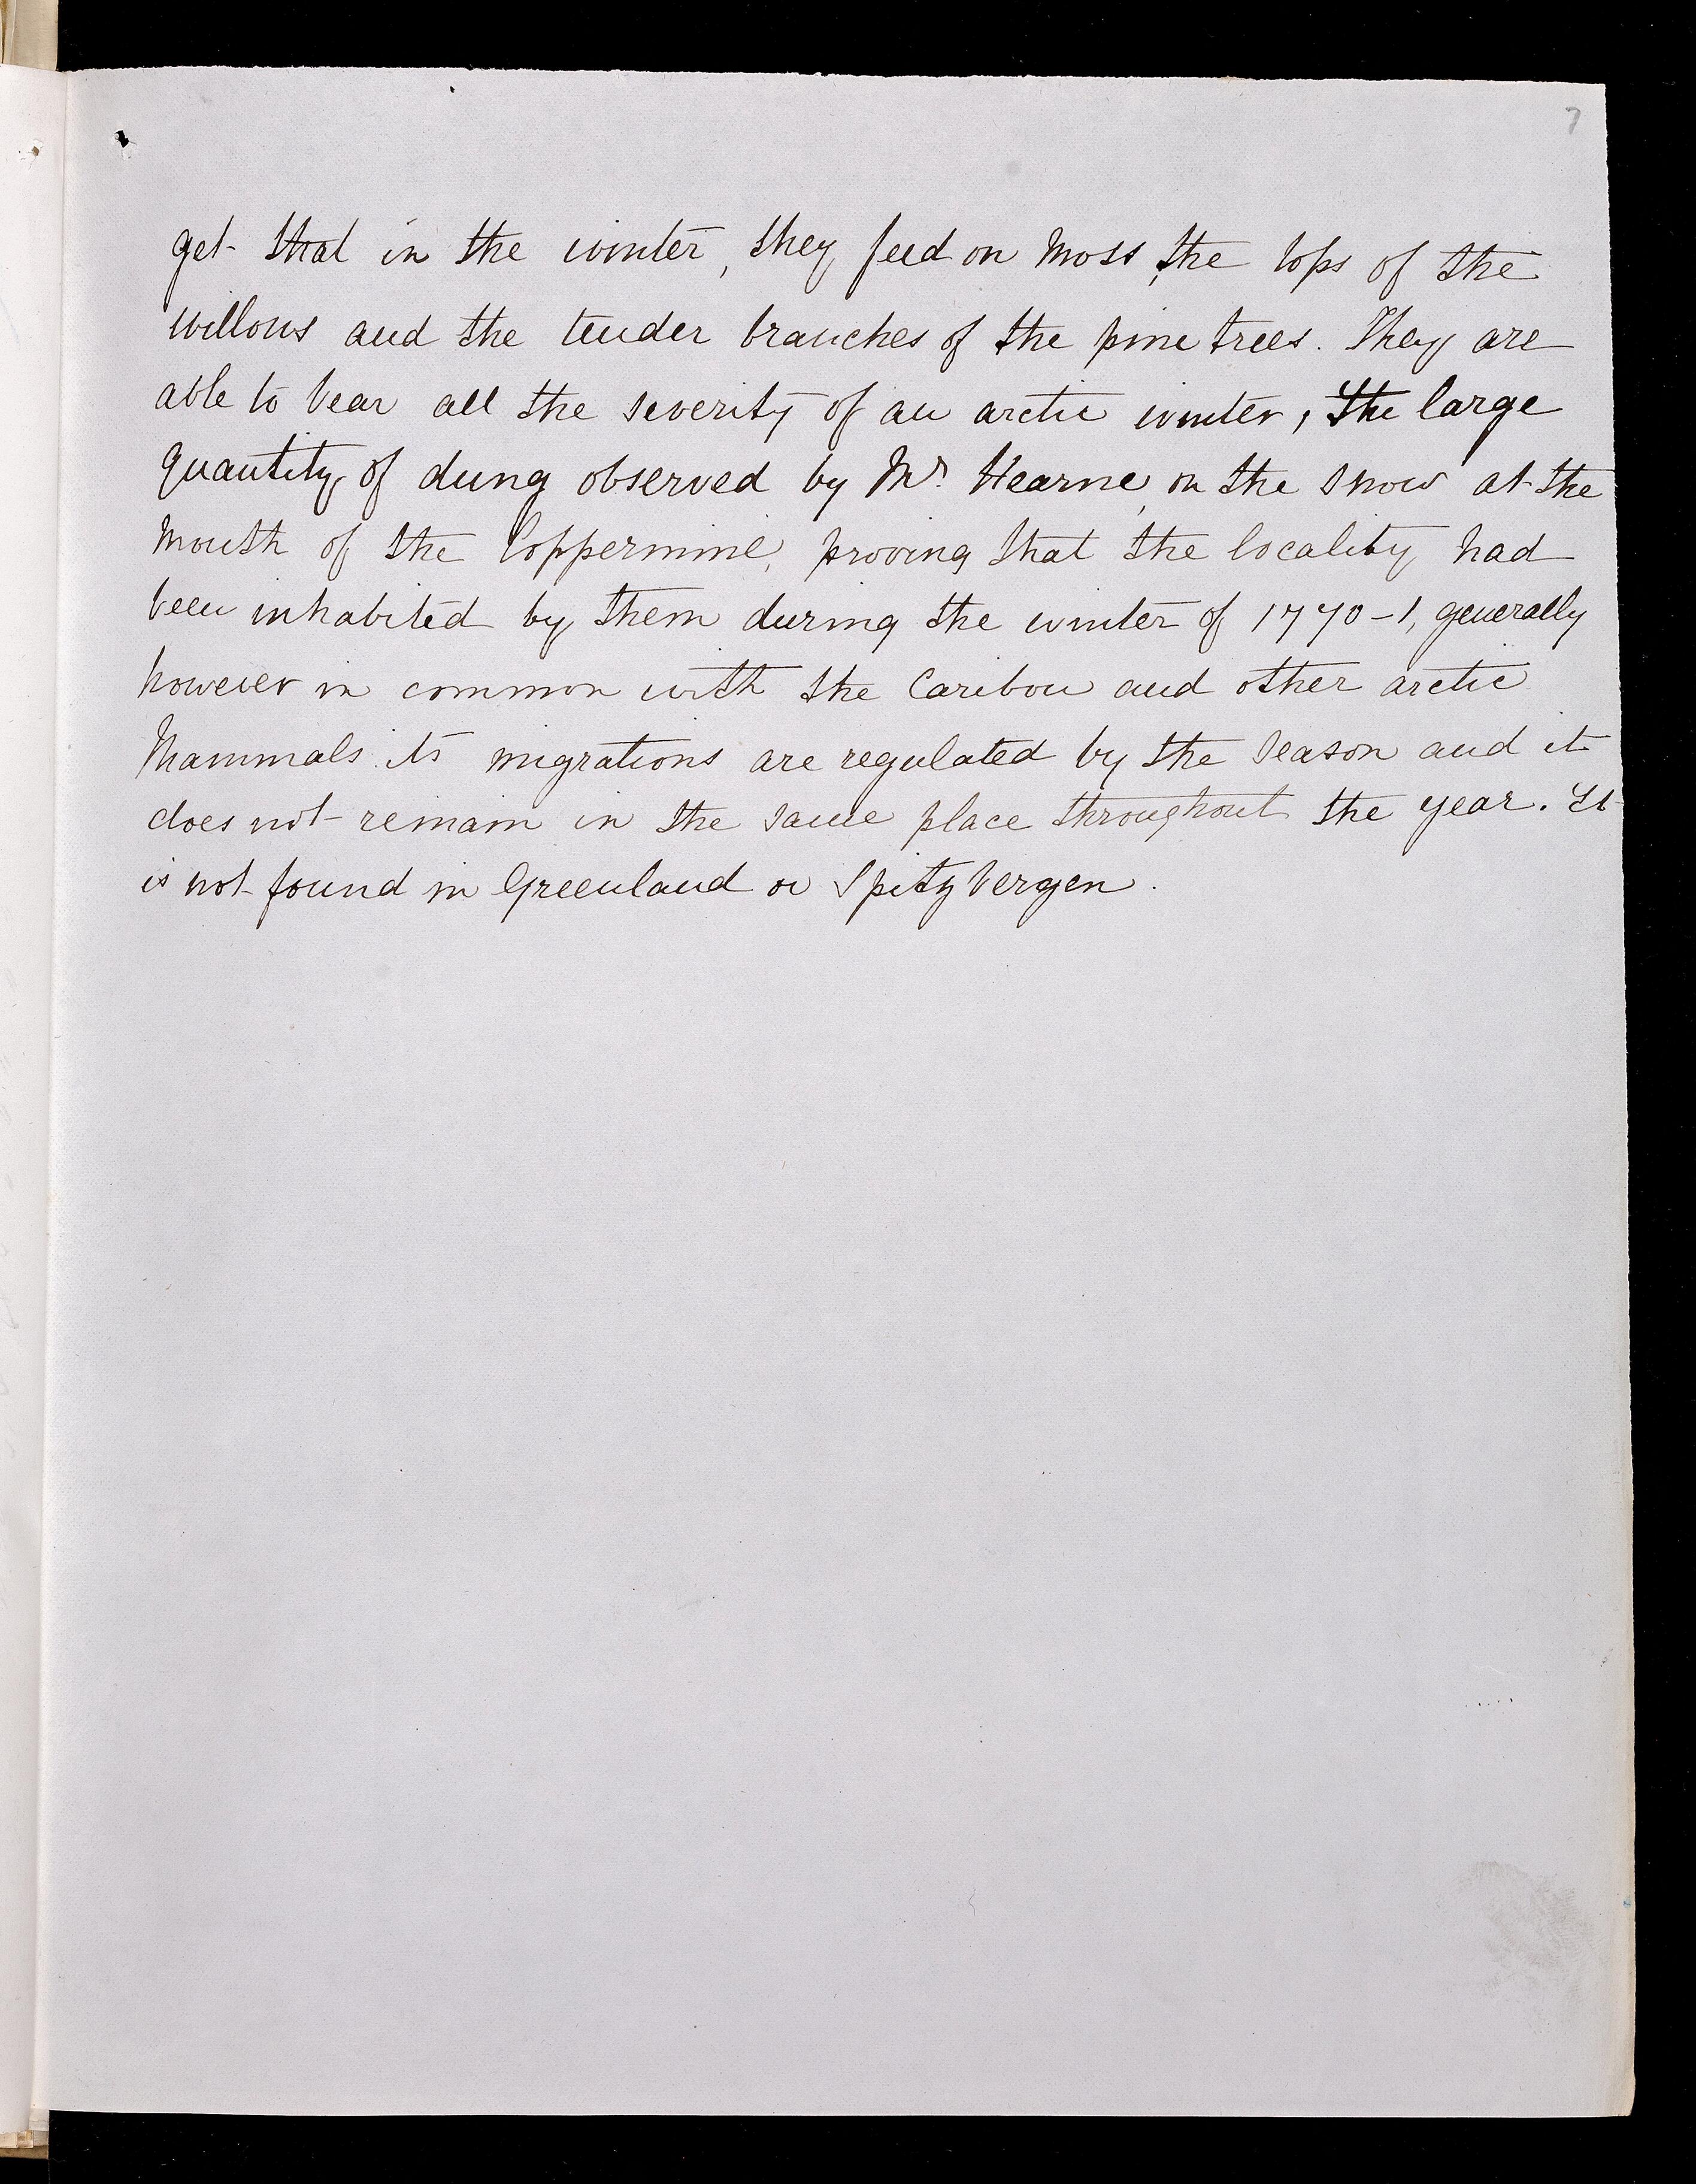 7
get that in the winter, they feed on Moss, the tops of the
willows and the tender branches of the pine trees. They are
able to bear all the severity of an arctic winter, the large
quantity of dung observed by Mr. Hearne, on the snow at the
mouth of the Coppermine, proving that the locality had
been inhabited by them during the winter of 1770-1, generally
however in common with the Caribou and other arctic
Mammals its migrations are regulated by the Season and it
does not remain in the same place throughout the year. It
is not found in Greenland or Spitzbergen.